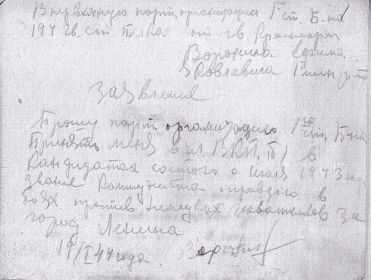 В первичную парт. организацию 1 ст. Б-на
194 гв. ст. полка от гв. Красноарм.
Воронина
Яковлевича 1 мин. р-т
заявление
Прошу парт. организацию 1го ст. Б-на
Принять меня в чл. ВКП(б) в
Кандидатах состою с июля 1943 г.
звание Коммуниста оправдаю в
боях против немецких захватчиков за
город Ленина
19/I 44 года Воронин